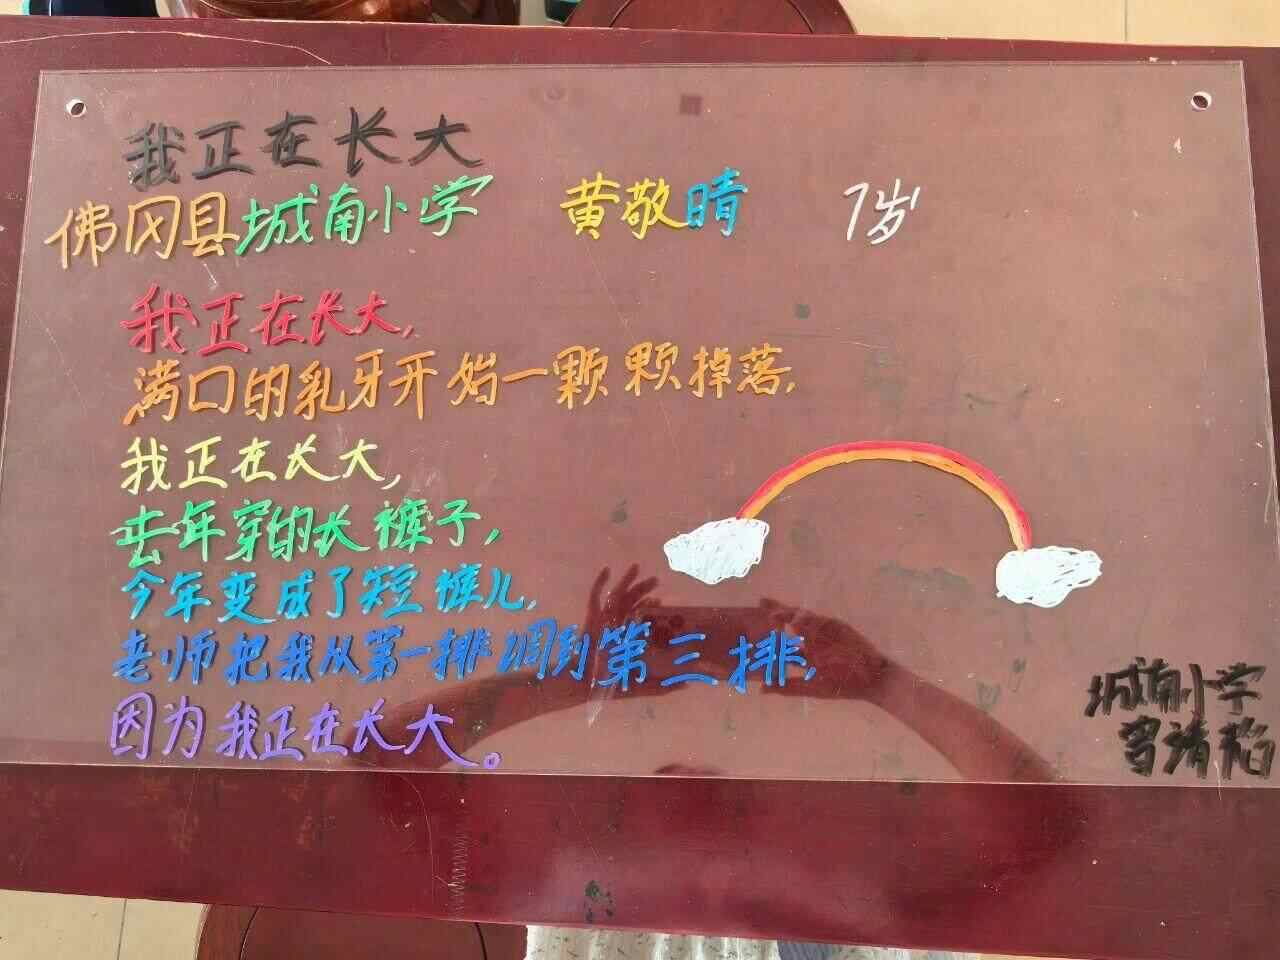 我正在长大
佛冈县城南小学 黄敬晴 7岁
我正在长大,
满口的乳牙开始一颗颗掉落,
我正在长大,
去年穿的长裤子,
今年变成了短裤儿,
老师把我从第一排调到第三排,
因为我正在长大。
城南小学
曾靖